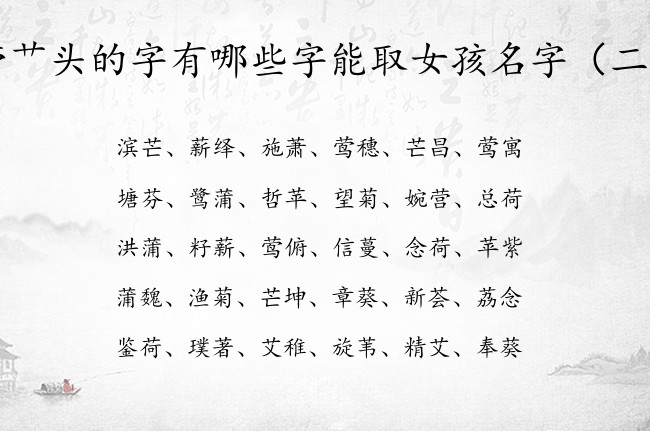 艹头的字有哪些字能取女孩名字（二
滨芒、薪绎、施萧、莺穗、芒昌、莺寓
塘芬、鹭蒲、哲苹、望菊、婉营、总荷
洪蒲、籽薪、莺俯、信蔓、念荷、苹紫
蒲魏、渔菊、芒坤、章葵、新荟、荔念
鉴荷、璞著、艾稚、旋苇、精艾、奉葵